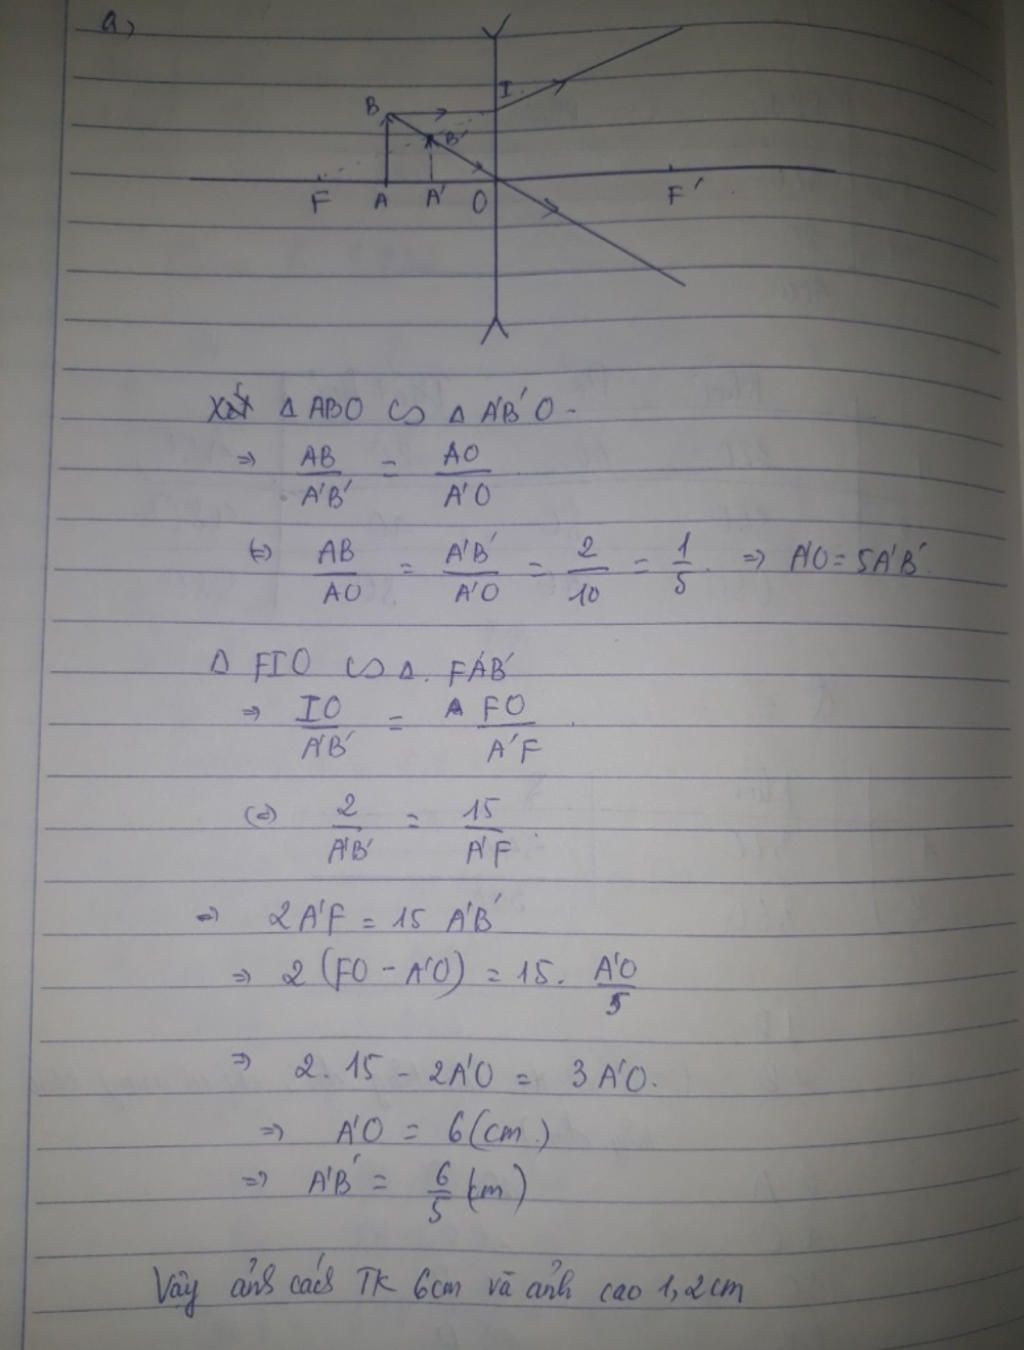 a,
I
B
B'
F A A' O F'
Xét Δ ABO ∽ Δ A'B'O -
⇒ AB/A'B' = AO/A'O
(=) AB/AO = A'B'/A'O = 2/10 = 1/5. ⇒ A'O = 5A'B'
Δ FIO ∽ Δ. FA'B'
⇒ IO/A'B' = FO/A'F
(=) 2/A'B' = 15/A'F
⇒ 2A'F = 15 A'B'
⇒ 2 (FO - A'O) = 15. A'O/5
⇒ 2. 15 - 2A'O = 3 A'O.
⇒ A'O = 6 (cm)
⇒ A'B' = 6/5 (cm)
Vậy ảnh cách TK 6cm và ảnh cao 1,2cm